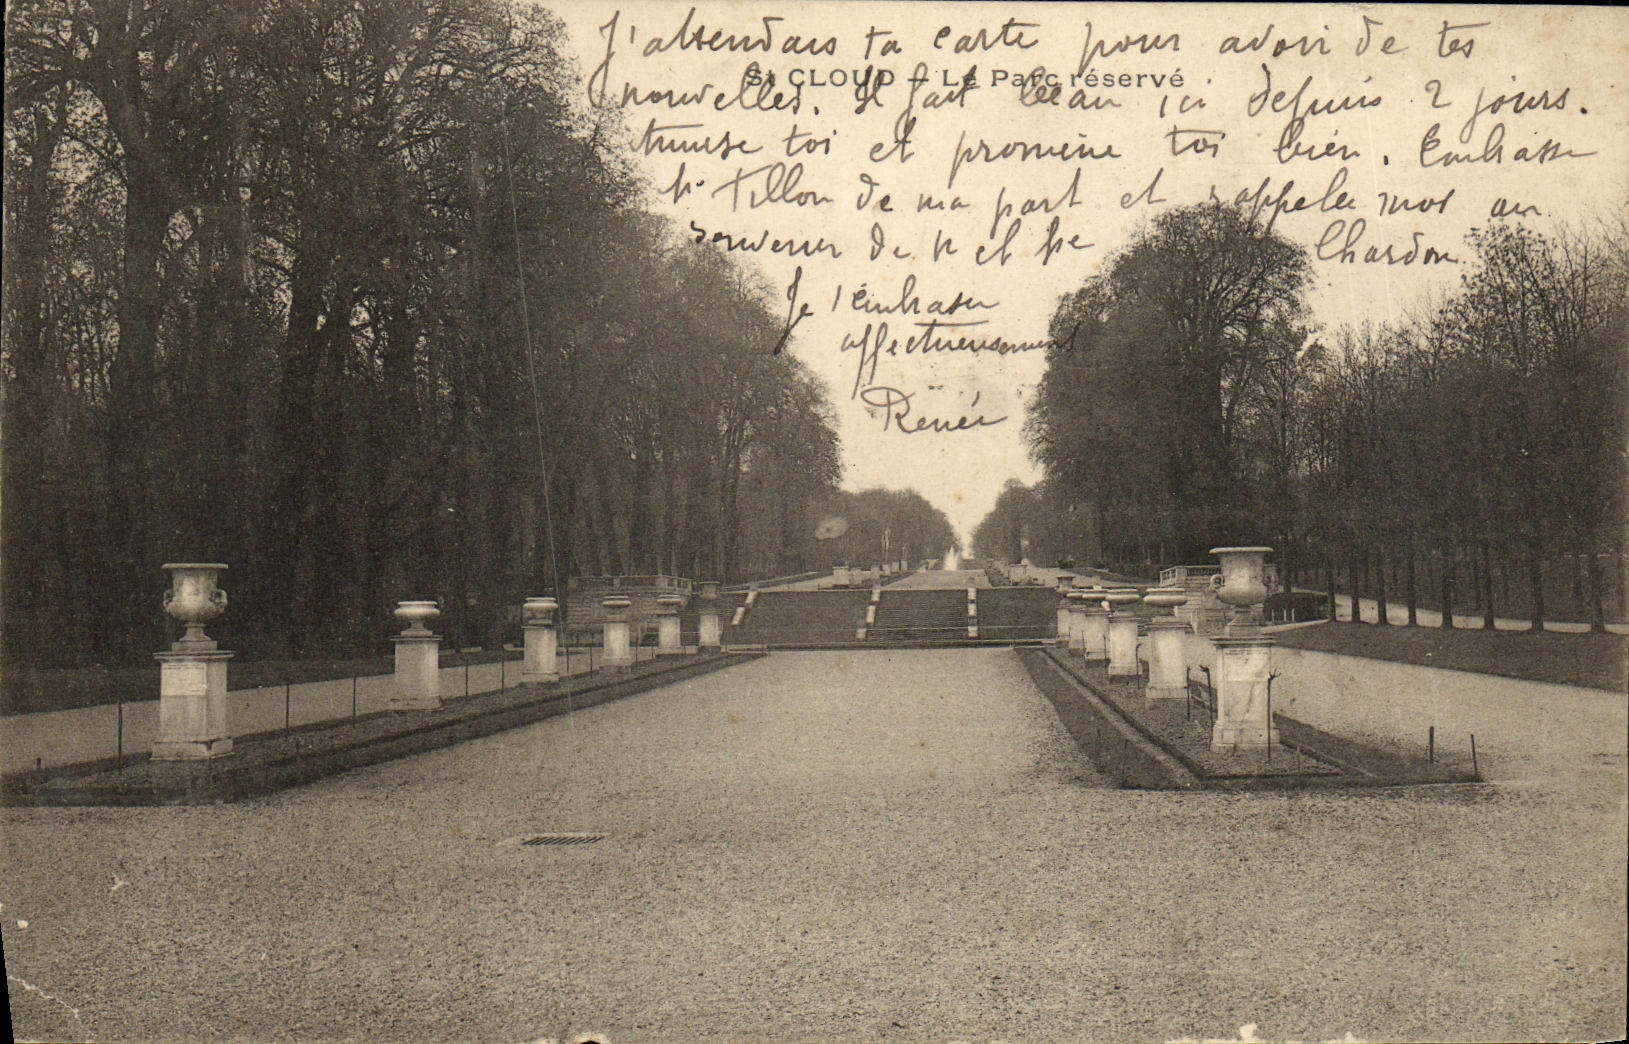 J'attendais ta carte pour avoir de tes
St CLOUD - Le Parc réservé
nouvelles. Il fait beau ici depuis 2 jours.
Amuse toi et promène toi bien. Embrasse
Tillon de ma part et rappelle moi au
souvenir de Mr et Me Chardon.
Je t'embrasse
affectueusement
Renée